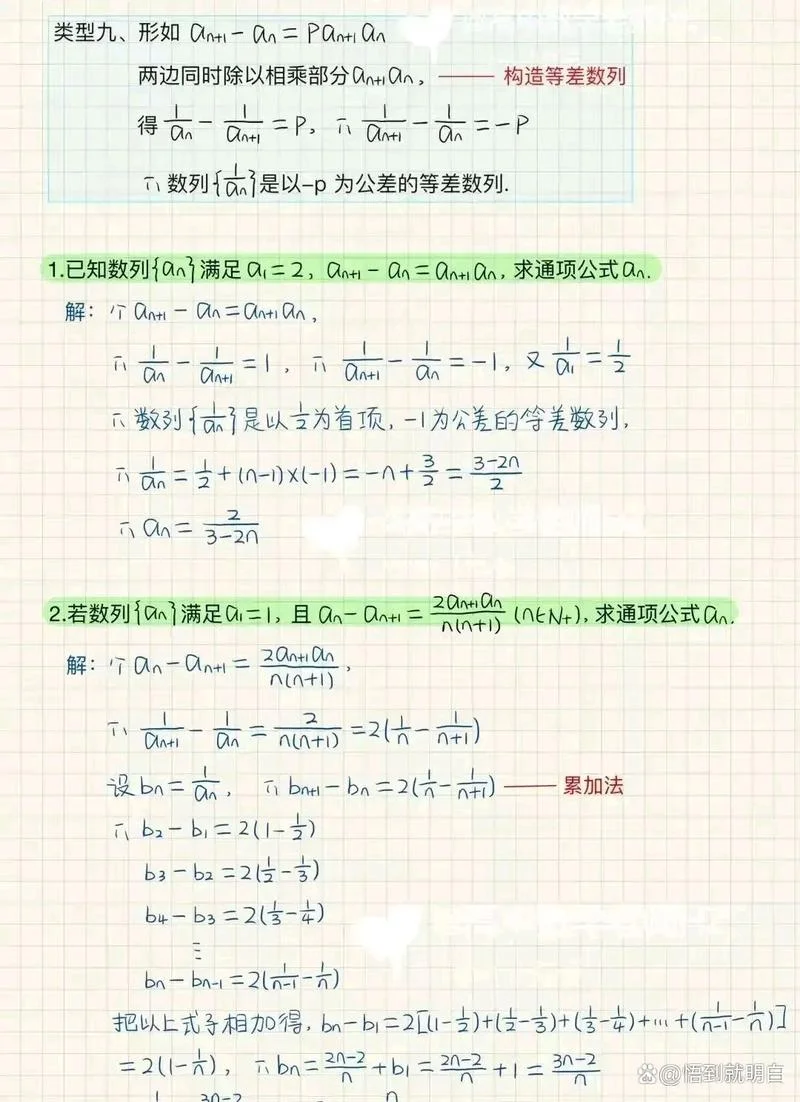 类型九、形如 aₙ₊₁ - aₙ = Paₙ₊₁aₙ
两边同时除以相乘部分aₙ₊₁aₙ, —— 构造等差数列
得 1/aₙ - 1/aₙ₊₁ = P, ∴ 1/aₙ₊₁ - 1/aₙ = -P
∴ 数列{1/aₙ}是以-p 为公差的等差数列.
1.已知数列{aₙ}满足 a₁=2, aₙ₊₁ - aₙ = aₙ₊₁aₙ, 求通项公式aₙ.
解: ∵ aₙ₊₁ - aₙ = aₙ₊₁aₙ,
∴ 1/aₙ - 1/aₙ₊₁ = 1, ∴ 1/aₙ₊₁ - 1/aₙ = -1, 又 1/a₁ = 1/2
∴ 数列{1/aₙ}是以1/2为首项, -1为公差的等差数列,
∴ 1/aₙ = 1/2 + (n-1)×(-1) = -n + 3/2 = (3-2n)/2
∴ aₙ = 2/(3-2n)
2.若数列{aₙ}满足a₁=1, 且 aₙ - aₙ₊₁ = 2aₙ₊₁aₙ/n(n+1) (n∈N₊), 求通项公式aₙ.
解: ∵ aₙ - aₙ₊₁ = 2aₙ₊₁aₙ/n(n+1),
∴ 1/aₙ₊₁ - 1/aₙ = 2/n(n+1) = 2(1/n - 1/(n+1))
设bₙ = 1/aₙ, ∴ bₙ₊₁ - bₙ = 2(1/n - 1/(n+1)) —— 累加法
∴ b₂ - b₁ = 2(1 - 1/2)
b₃ - b₂ = 2(1/2 - 1/3)
b₄ - b₃ = 2(1/3 - 1/4)
⋮
bₙ - bₙ₋₁ = 2(1/(n-1) - 1/n)
把以上式子相加得, bₙ - b₁ = 2[(1 - 1/2) + (1/2 - 1/3) + (1/3 - 1/4) + ... + (1/(n-1) - 1/n)]
= 2(1 - 1/n), ∴ bₙ = (2n-2)/n + b₁ = (2n-2)/n + 1 = (3n-2)/n
@悟到就明白